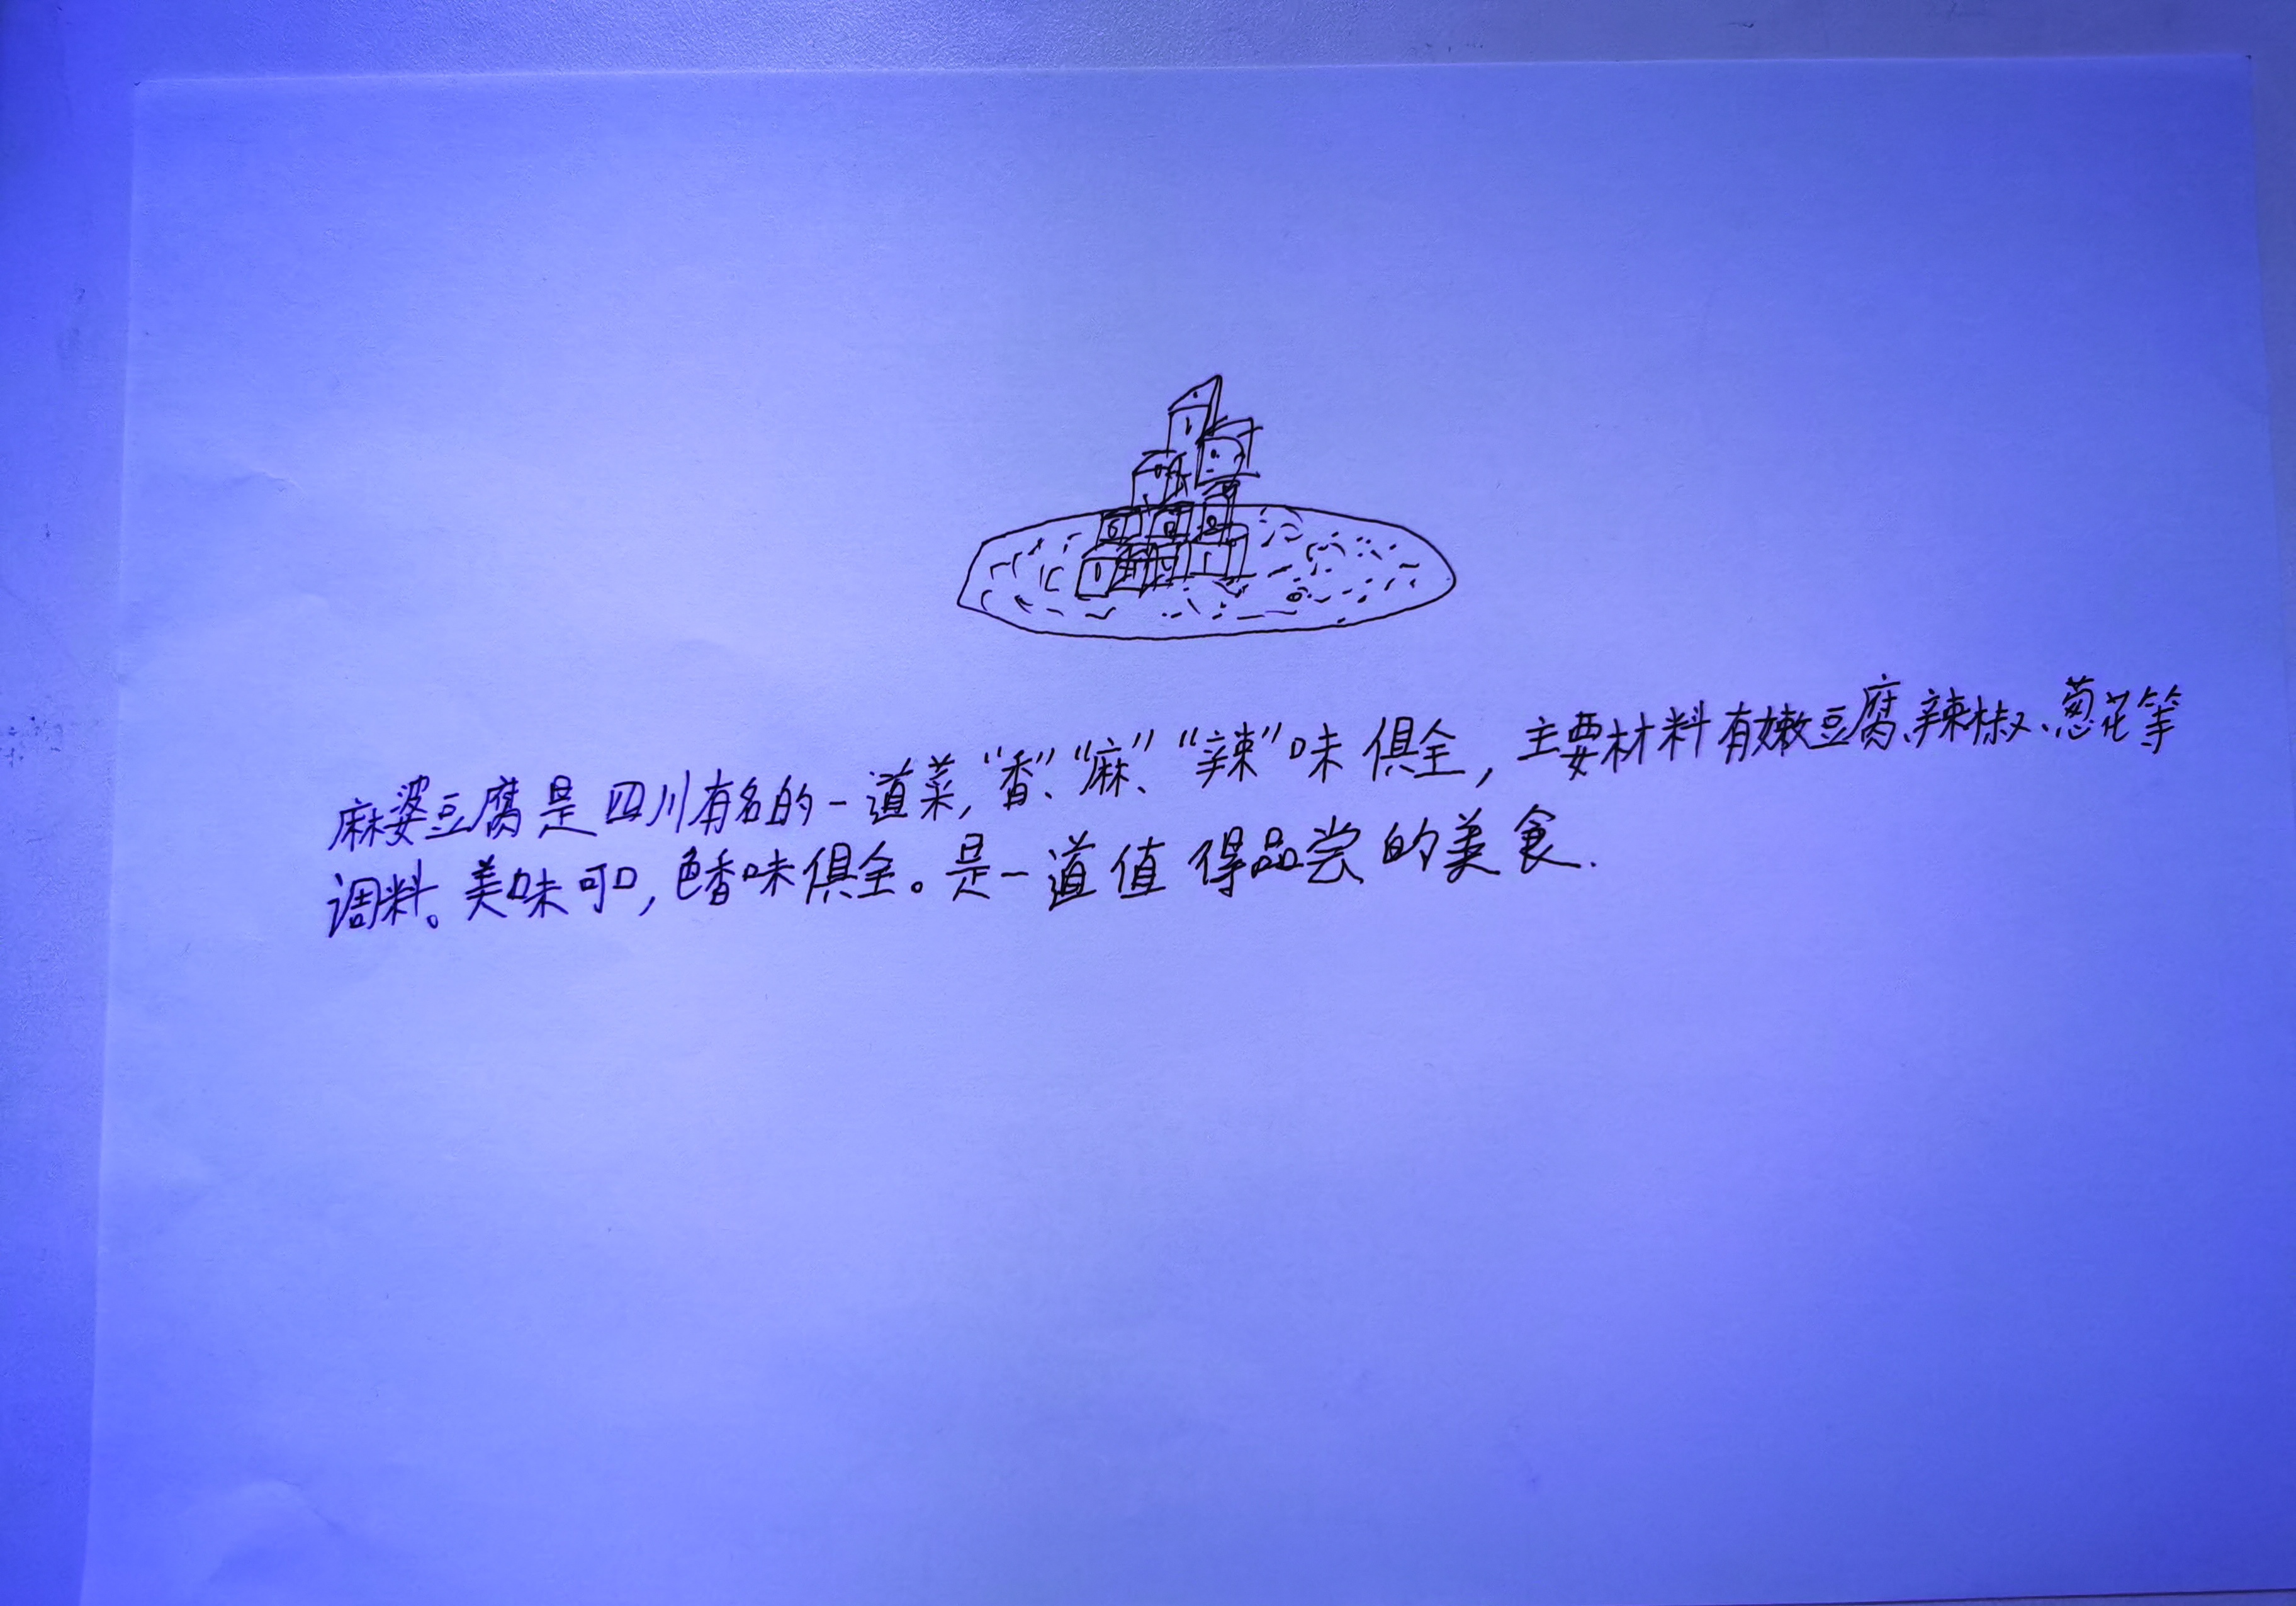 麻婆豆腐是四川有名的一道菜,“香”、“麻”、“辣”味俱全,主要材料有嫩豆腐、辣椒、葱花等
调料。美味可口,色香味俱全。是一道值得品尝的美食.